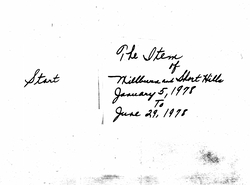 Start
The Item
of
Millburn and Short Hills
January 5, 1978
To
June 29, 1978